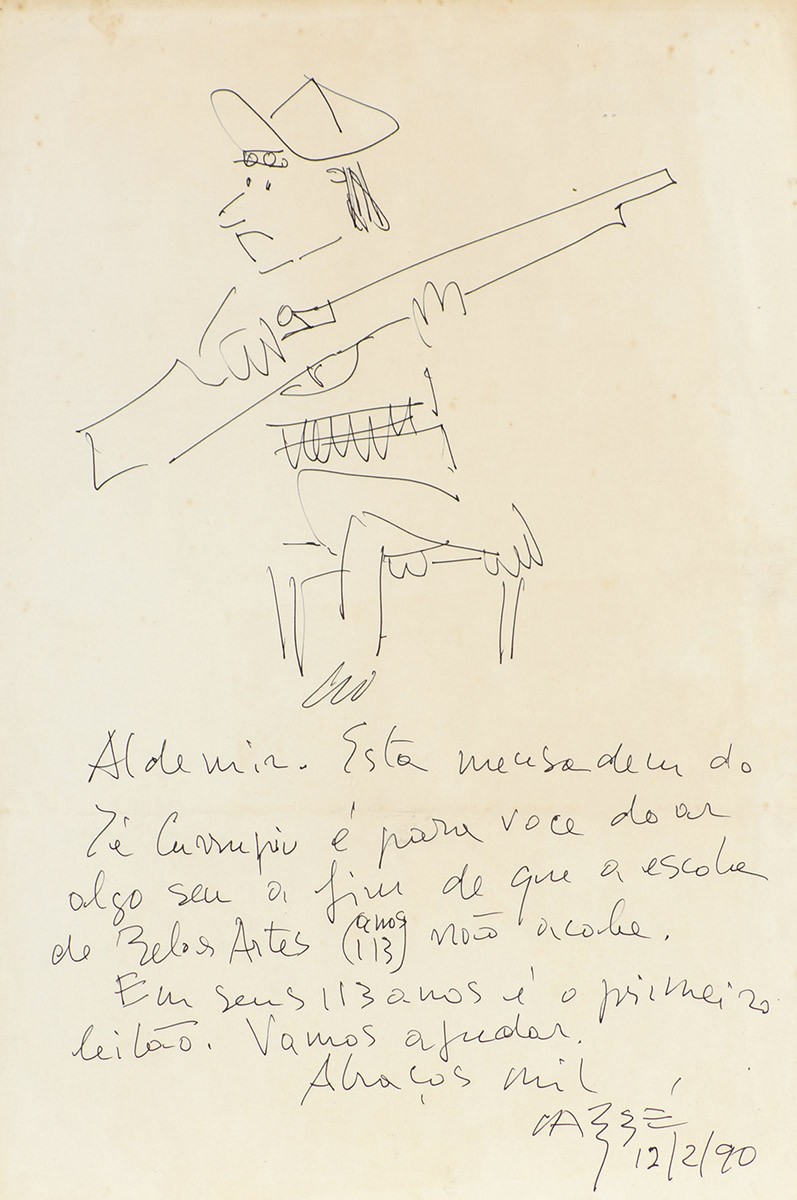 Aldemir. Esta mensadem do
Zé Currupio é para voce doar
algo seu a fim de que a escola
de Belas Artes (113 anos) não acabe.
Em seus 113 anos é o primeiro
leilão. Vamos ajudar.
Abraços mil
12/2/90